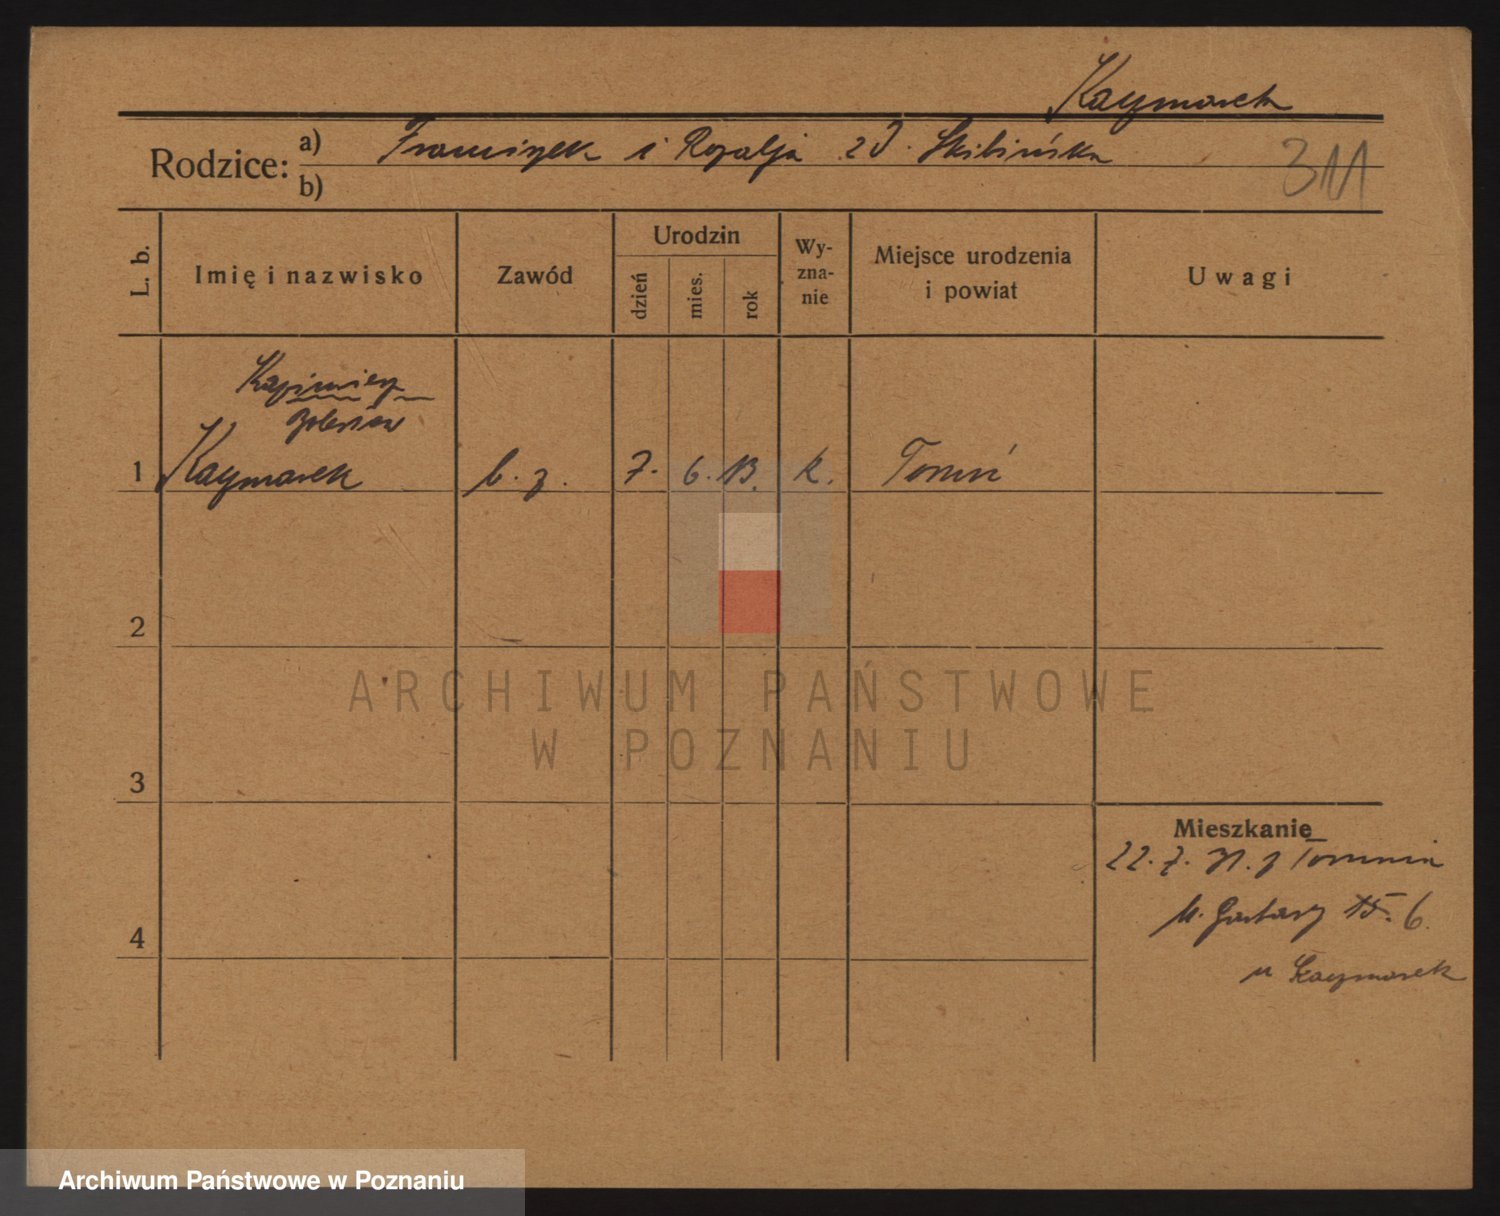 Kaczmarek
Rodzice: a) Franciszek i Rozalja z d. Skibińska
b)
311
L. b.
Imię i nazwisko
Zawód
Urodzin
dzień
mies.
rok
Wy-
zna-
nie
Miejsce urodzenia
i powiat
Uwagi
Kazimierz
Bolesław
1 Kaczmarek b. z. 7. 6. 13. k. Toruń
2
3
4
Mieszkanie
22. 7. 31. z Torunia
Garbary 15. 6.
u Kaczmarek
ARCHIWUM PAŃSTWOWE
W POZNANIU
Archiwum Państwowe w Poznaniu